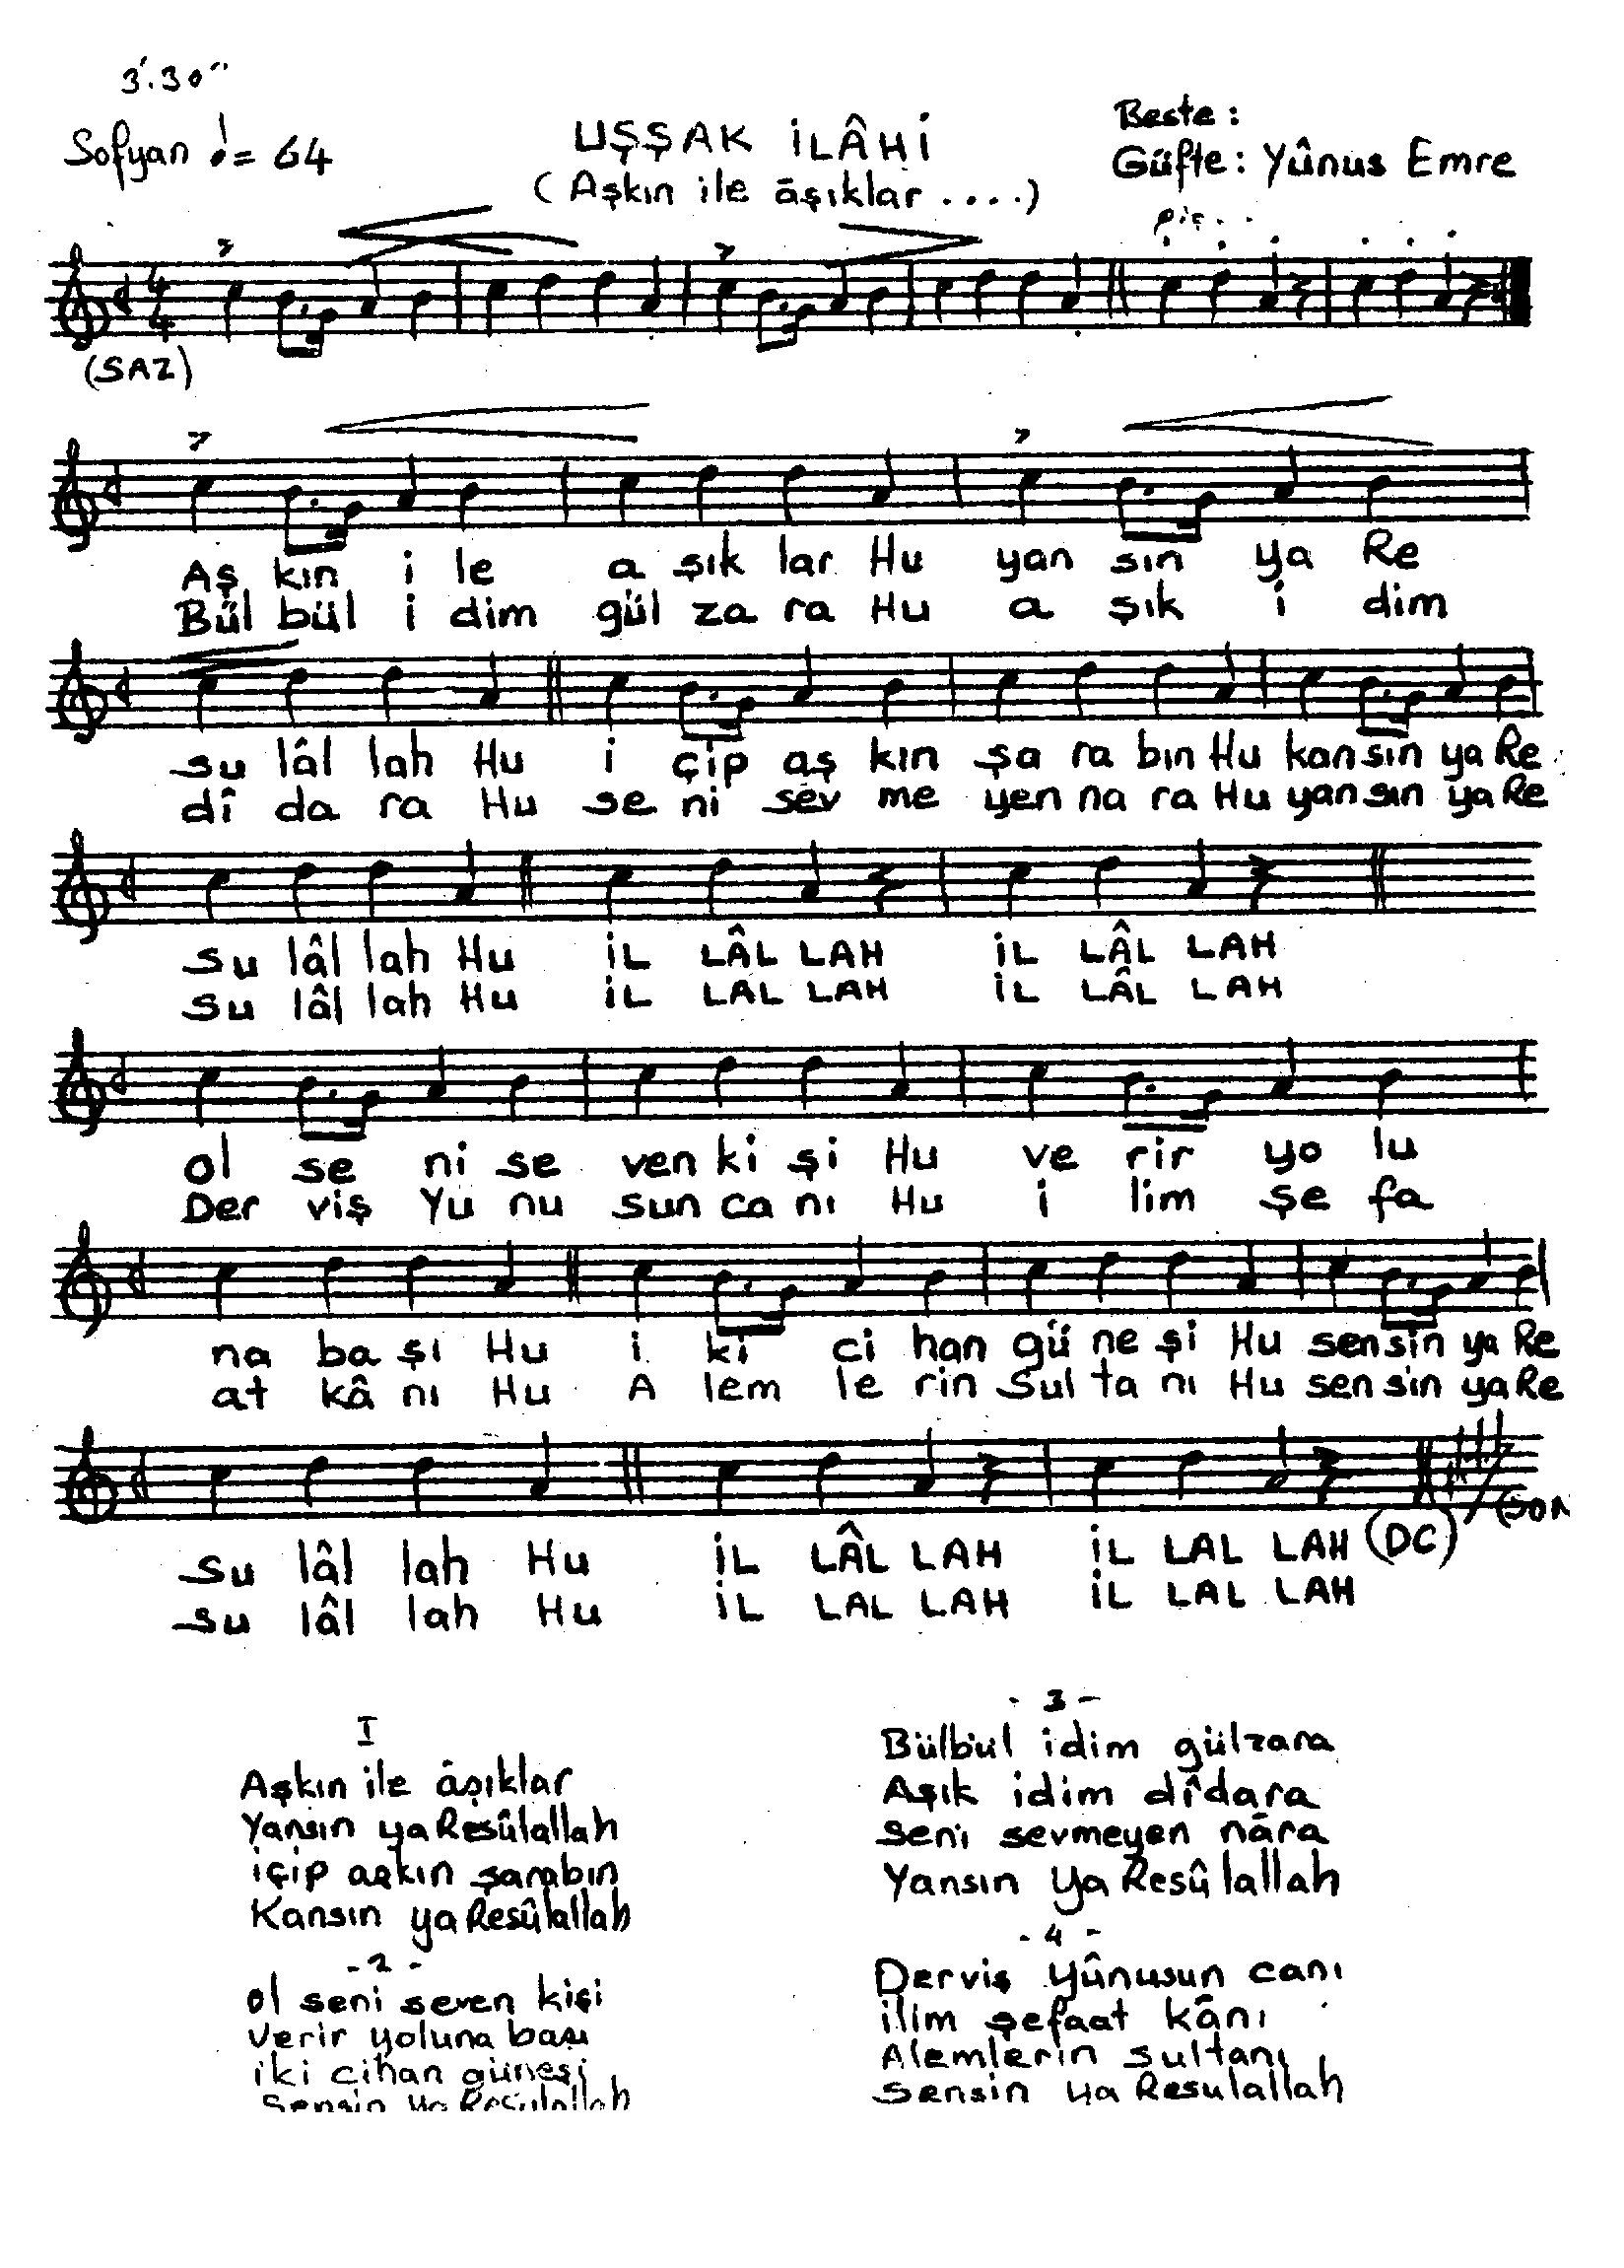 3'.30''
Sofyan ♩= 64
UŞŞAK İLÂHİ
(Aşkın ile āşıklar ....)
Beste :
Güfte : Yûnus Emre
4
4
(SAZ)
Aş kın i le a şık lar Hu yan sın ya Re
Bül bül i dim gül za ra Hu a şık i dim
su lâl lah Hu i çip aş kın şa ra bın Hu kan sın ya Re
dî da ra Hu se ni sev me yen na ra Hu yan sın ya Re
su lâl lah Hu İL LÂL LAH İL LÂL LAH
su lâl lah Hu İL LAL LAH İL LÂL LAH
ol se ni se ven ki şi Hu ve rir yo lu
Der viş Yu nu sun ca nı Hu i lim şe fa
na ba şı Hu i ki ci han gü ne şi Hu sen sin ya Re
at kâ nı Hu A lem le rin Sul ta nı Hu sen sin ya Re
(SON
su lâl lah Hu İL LÂL LAH İL LAL LAH (DC)
su lâl lah Hu İL LAL LAH İL LAL LAH
I
Aşkın ile āşıklar
Yansın ya Resûlallah
içip aşkın şarabın
Kansın ya Resûlallah
- 2 -
Ol seni seven kişi
Verir yoluna başı
iki cihan güneşi
Sensin ya Resûlallah
- 3 -
Bülbül idim gülzara
Aşık idim dîdara
Seni sevmeyen nāra
Yansın ya Resûlallah
- 4 -
Derviş Yûnusun canı
ilim şefaat kānı
Alemlerin sultanı
Sensin ya Resulallah